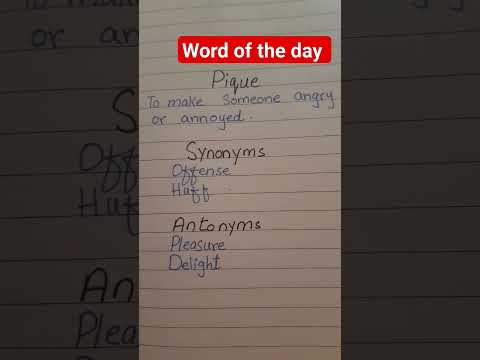 Word of the day
Pique
To make someone angry
or annoyed.
Synonyms
Offense
Huff
Antonyms
Pleasure
Delight